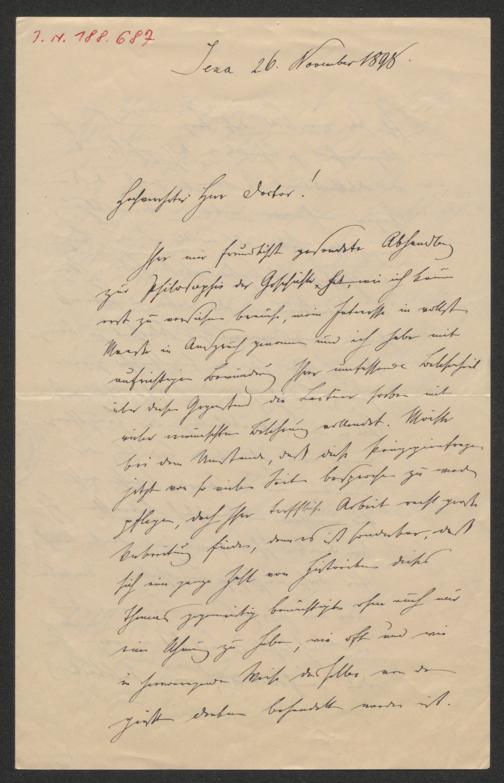 J. N. 188.687
Jena 26. November 1898.
Hochverehrter Herr Doctor!
Ihre mir freundlichst gesendete Abhandlung
zur Philosophie der Geschichte hat, wie ich kaum
erst zu versichern brauche, mein Interesse in vollstem
Maaße in Anspruch genommen und ich habe mit
aufrichtiger Bewunderung Ihrer umfassenden Belesenheit
über diesen Gegenstand die Lectüre soeben mit
vieler Belehrung vollendet. Möchte
bei dem Umstande, daß diese Prinzipienfragen
jetzt von so vielen Seiten besprochen zu werden
pflegen, doch Ihre treffliche Arbeit recht große
Verbreitung finden, denn es ist sonderbar, daß
sich eine ganze Zahl von Historikern dieses
Themas gegenwärtig bemächtigte ohne auch nur
eine Ahnung zu haben, wie oft und wie
in hervorragender Weise dasselbe von den
behandelt worden ist.